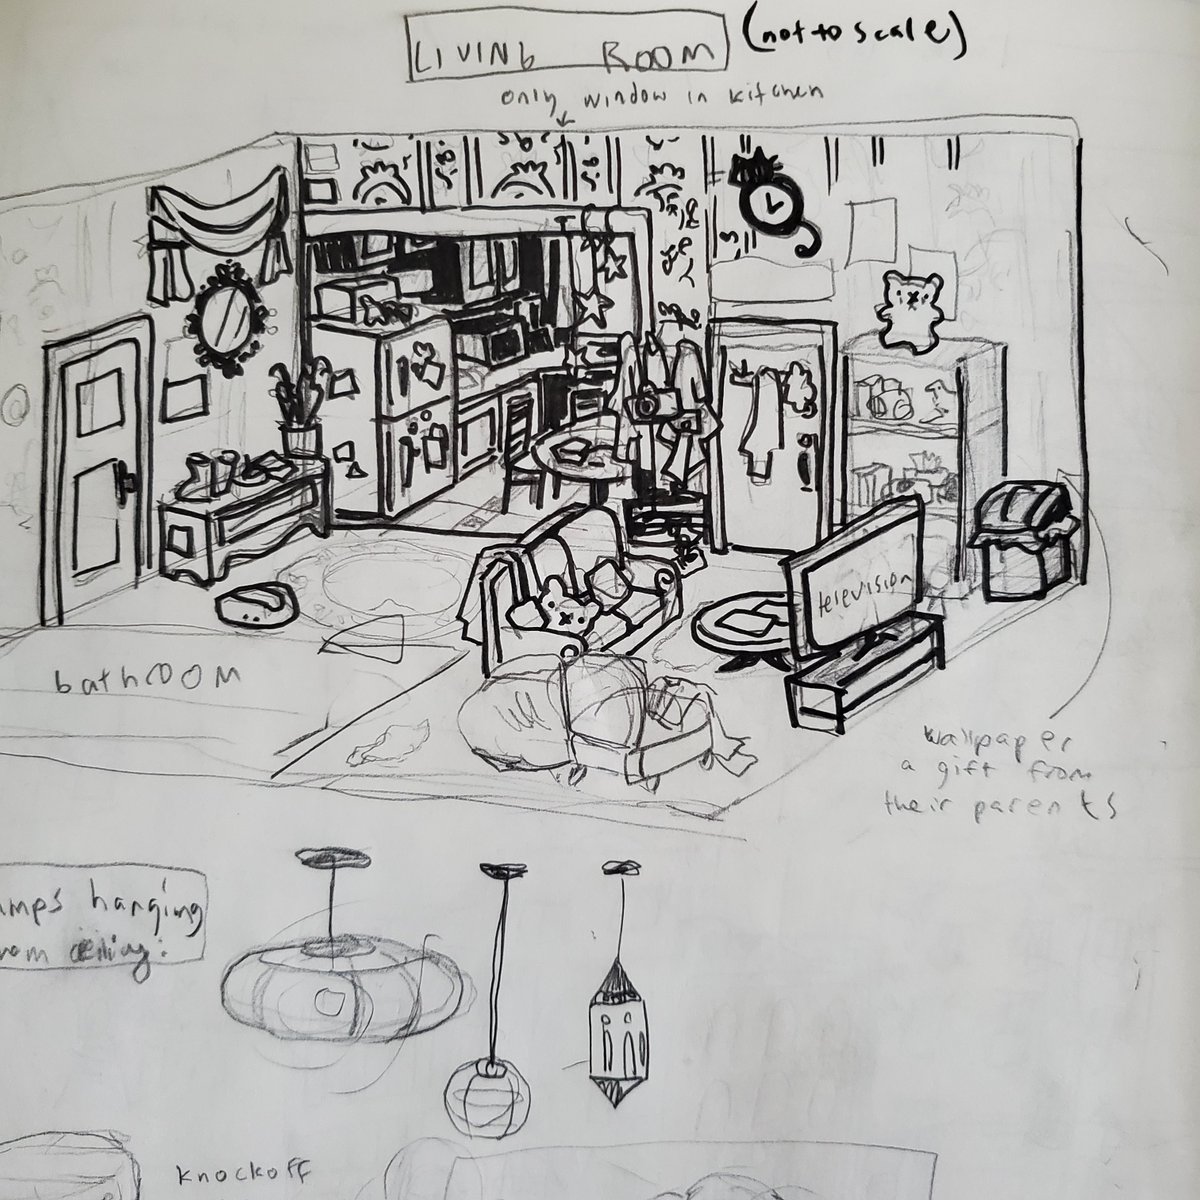 LIVING ROOM
(not to scale)
only window in kitchen
television
bathroom
wallpaper
a gift from
their parents
amps hanging
rom ceiling:
knockoff